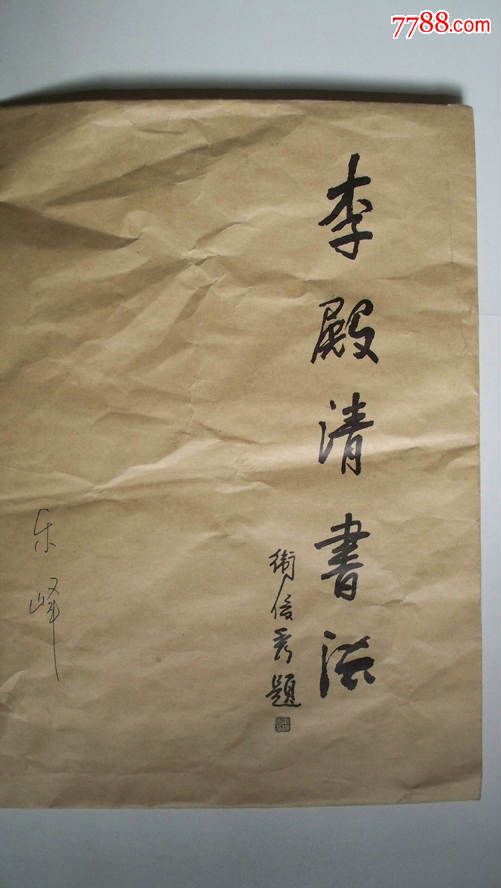 7788.com
李殿清書法
衛俊秀題
乐峰